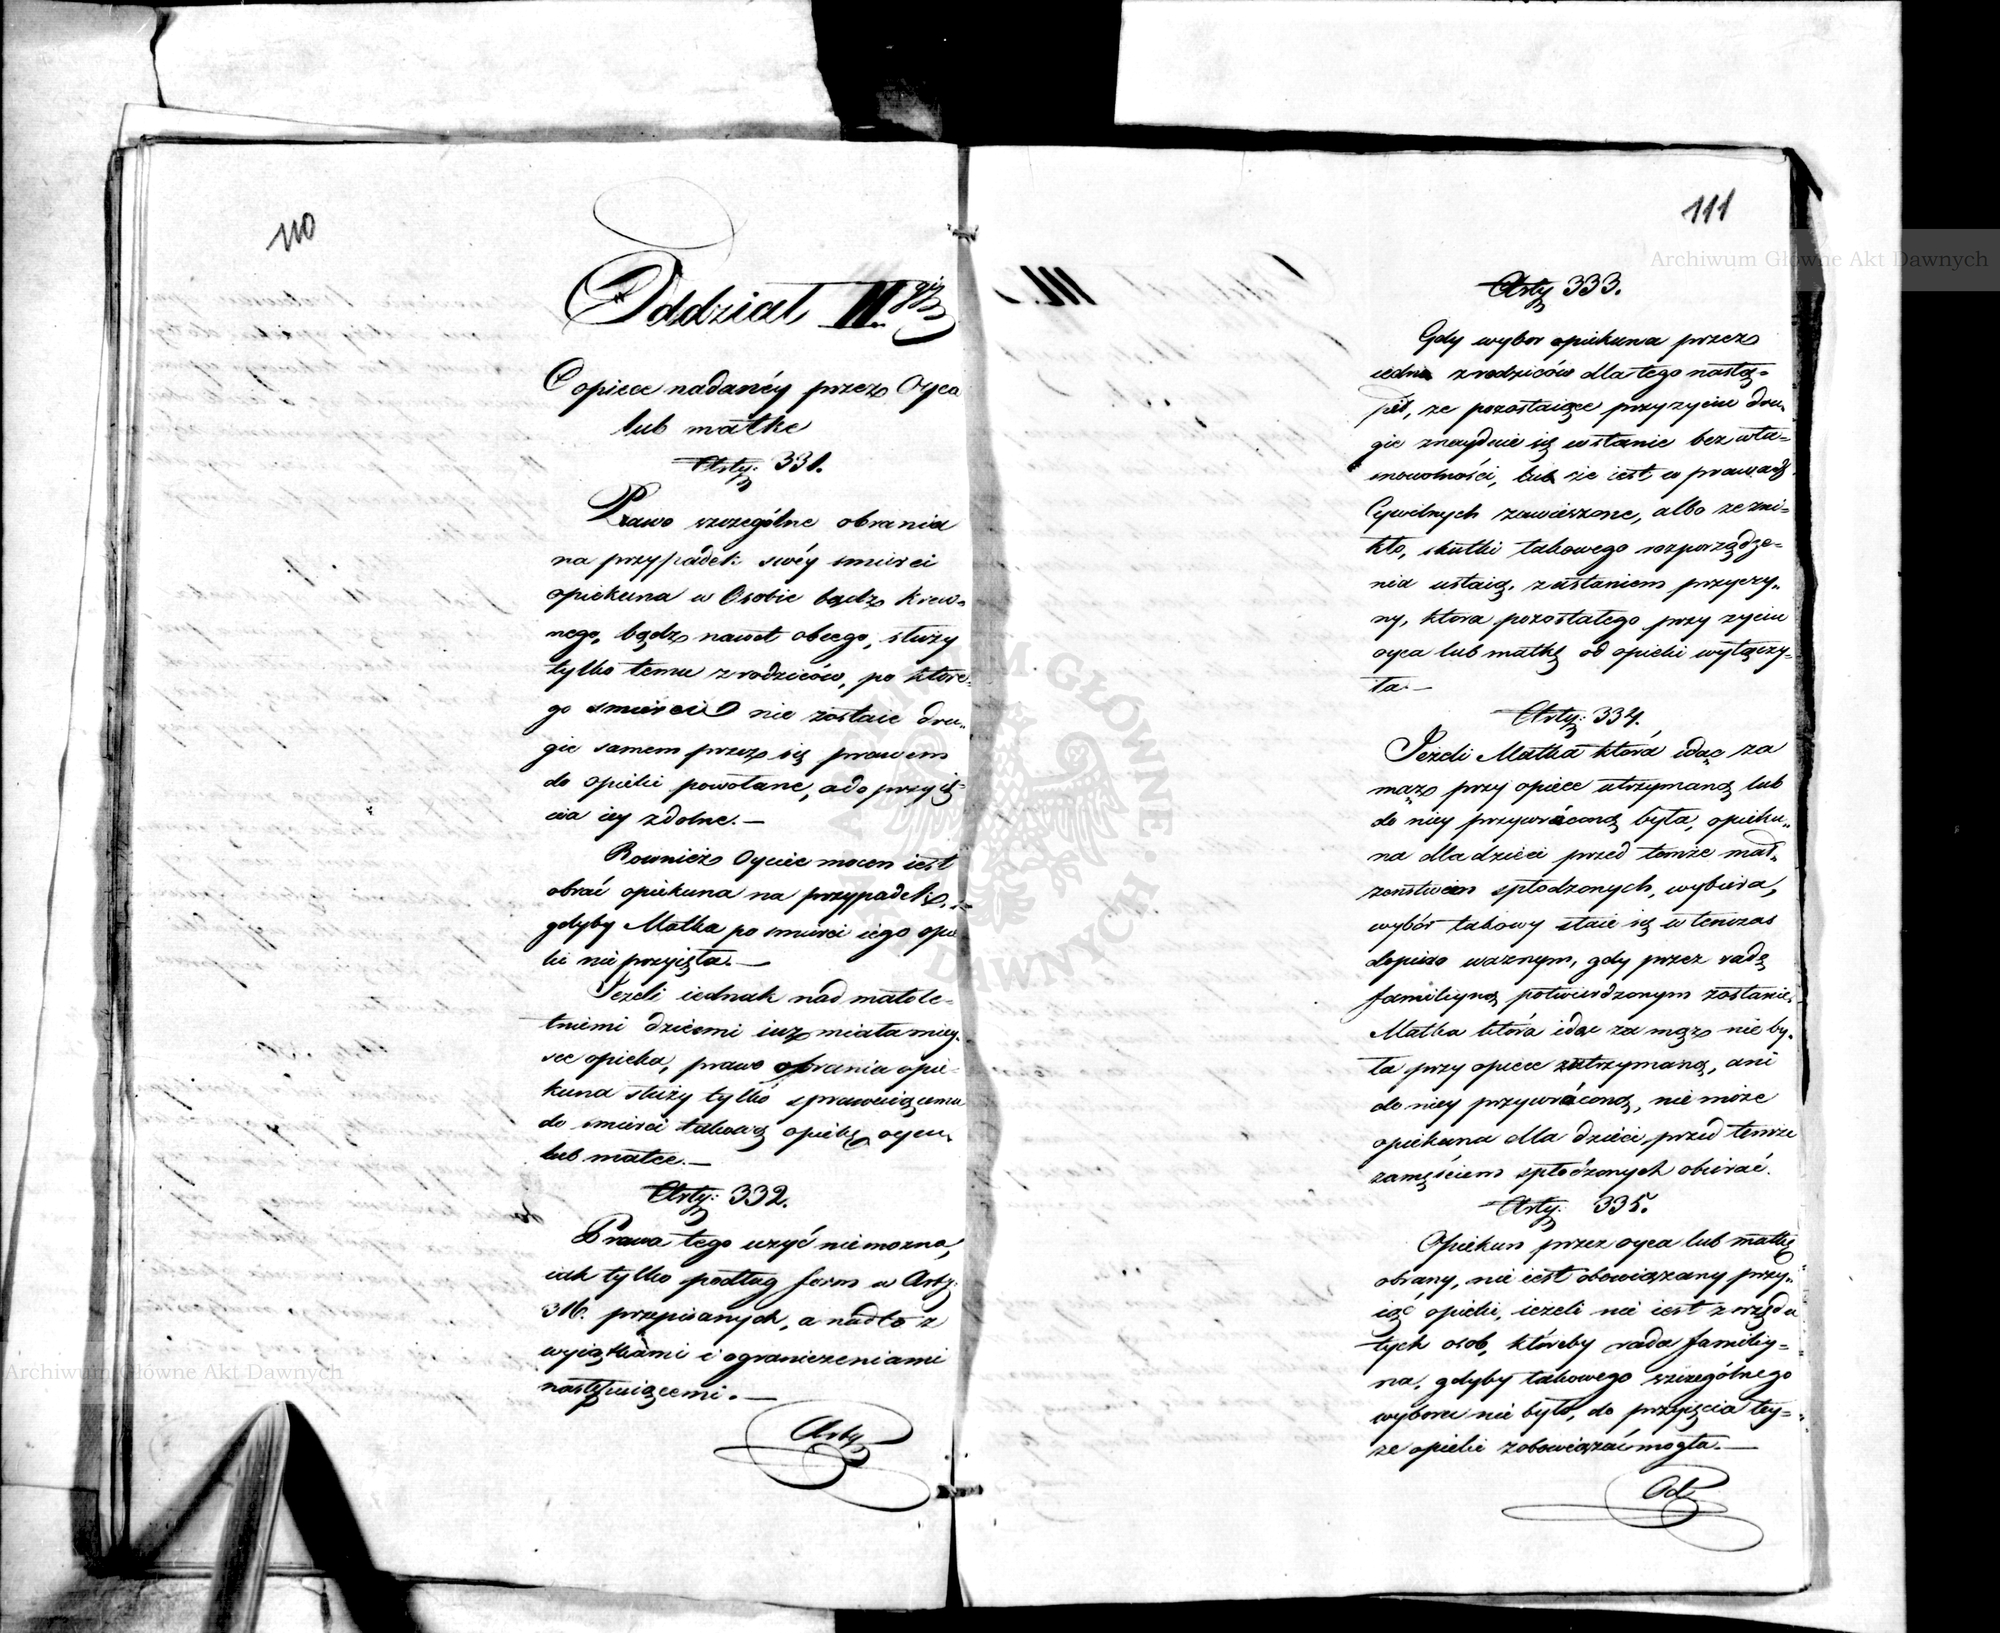 110
Oddział II.gi
O opiece nadanéy przez Oyca
lub matkę
Arty: 331.
Prawo szczególne obrania
na przypadek swéy smierci
opiekuna w Osobie bądz krew-
nego, bądz nawet obcego, służy
tylko temu z rodziców, po które-
go smierci nie zostaie dru-
gie samem przez się prawem
do opieki powołane, a do przyię-
cia iey zdolne.—
Rownież Oyciec mocen iest
obrać opiekuna na przypadek,
gdyby Matka po smierci iego opie
ki nie przyięła.—
Jeżeli iednak nad małole-
tniemi dziećmi iuż miała miey-
sce opieka, prawo obrania opie-
kuna służy tylko sprawuiącemu
do smierci takową opiekę oycu,
lub matce.—
Arty: 332.
Prawa tego użyć nie można,
iak tylko podług form w Arty:
316. przepisanych, a nadto z
wyiątkami i ograniczeniami
następuiącemi.—
Arty
111
Arty 333.
Gdy wybor opiekuna przez
iedno z rodziców dla tego nastą-
pił, ze pozostaiące przy zyciu dru-
gie znayduie się w stanie bezwła-
snowolności, lub że iest w prawach
Cywilnych zawieszone, albo ze zni-
kło, skutki takowego rozporządze-
nia ustaią, z ustaniem przyczy-
ny, ktora pozostałego przy zyciu
oyca lub matkę od opieki wyłączy-
ła.—
Arty: 334.
Jeżeli Matka która idąc za
mąż przy opiece utrzymaną lub
do niey przywróconą była, opieku-
na dla dzieci przed temże mał-
żeństwem spłodzonych, wybiera,
wybór takowy staie się w tenczas
dopiero ważnym, gdy przez radę
familiyną potwierdzonym zostanie.
Matka która idąc za mąż nie by-
ła przy opiece utrzymaną, ani
do niey przywróconą, nie może
opiekuna dla dzieci przed temże
zamęściem spłodzonych obierać.
Arty: 335.
Opiekun przez oyca lub matkę
obrany, nie iest obowiązany przy-
iąć opieki, ieżeli nie iest z rzędu
tych osob, któreby rada familiy-
na, gdyby takowego szczególnego
wyboru nie było, do przyięcia tey-
że opieki zobowiązać mogła.—
Od
Archiwum Główne Akt Dawnych
Archiwum Główne Akt Dawnych
ARCHIWUM GŁÓWNE · AKT DAWNYCH ·